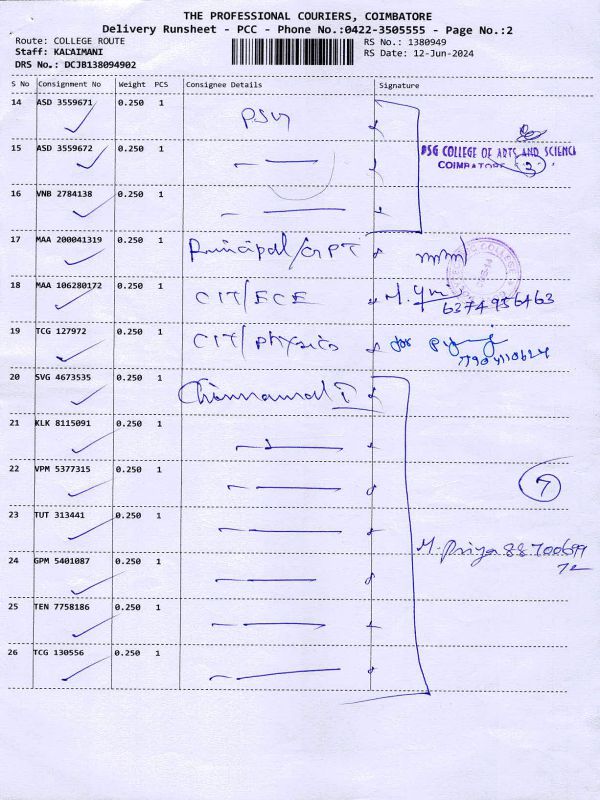 THE PROFESSIONAL COURIERS, COIMBATORE
Delivery Runsheet - PCC - Phone No.:0422-3505555 - Page No.:2
Route: COLLEGE ROUTE
RS No.: 1380949
Staff: KALAIMANI
RS Date: 12-Jun-2024
DRS No.: DCJB138094902
S No Consignment No Weight PCS Consignee Details Signature
14 ASD 3559671 0.250 1 PSG
15 ASD 3559672 0.250 1
PSG COLLEGE OF ARTS AND SCIENCE
COIMBATORE
3
16 VNB 2784138 0.250 1
17 MAA 200041319 0.250 1 Principal/
18 MAA 106280172 0.250 1 CIT/ECE M.
6374956463
19 TCG 127972 0.250 1 CIT/Physics for
20 SVG 4673535 0.250 1
21 KLK 8115091 0.250 1
22 VPM 5377315 0.250 1
7
23 TUT 313441 0.250 1
M. Priya 88700699
72
24 GPM 5401087 0.250 1
25 TEN 7758186 0.250 1
26 TCG 130556 0.250 1